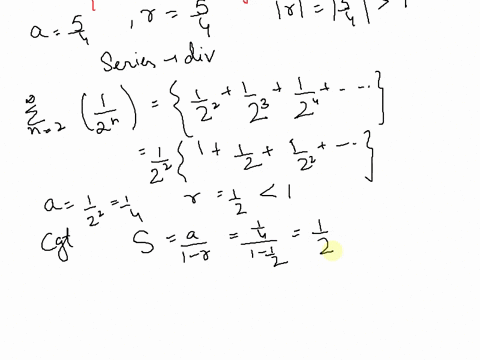 a = 5/4 , r = 5/4 |r| = |5/4| > 1
Series → div
∞ Σ n=2 (1/2ⁿ) = { 1/2² + 1/2³ + 1/2⁴ + - -- }
= 1/2² { 1 + 1/2 + 1/2² + --- }
a = 1/2² = 1/4 r = 1/2 < 1
Cgt S = a/1-r = 1/4/1-1/2 = 1/2